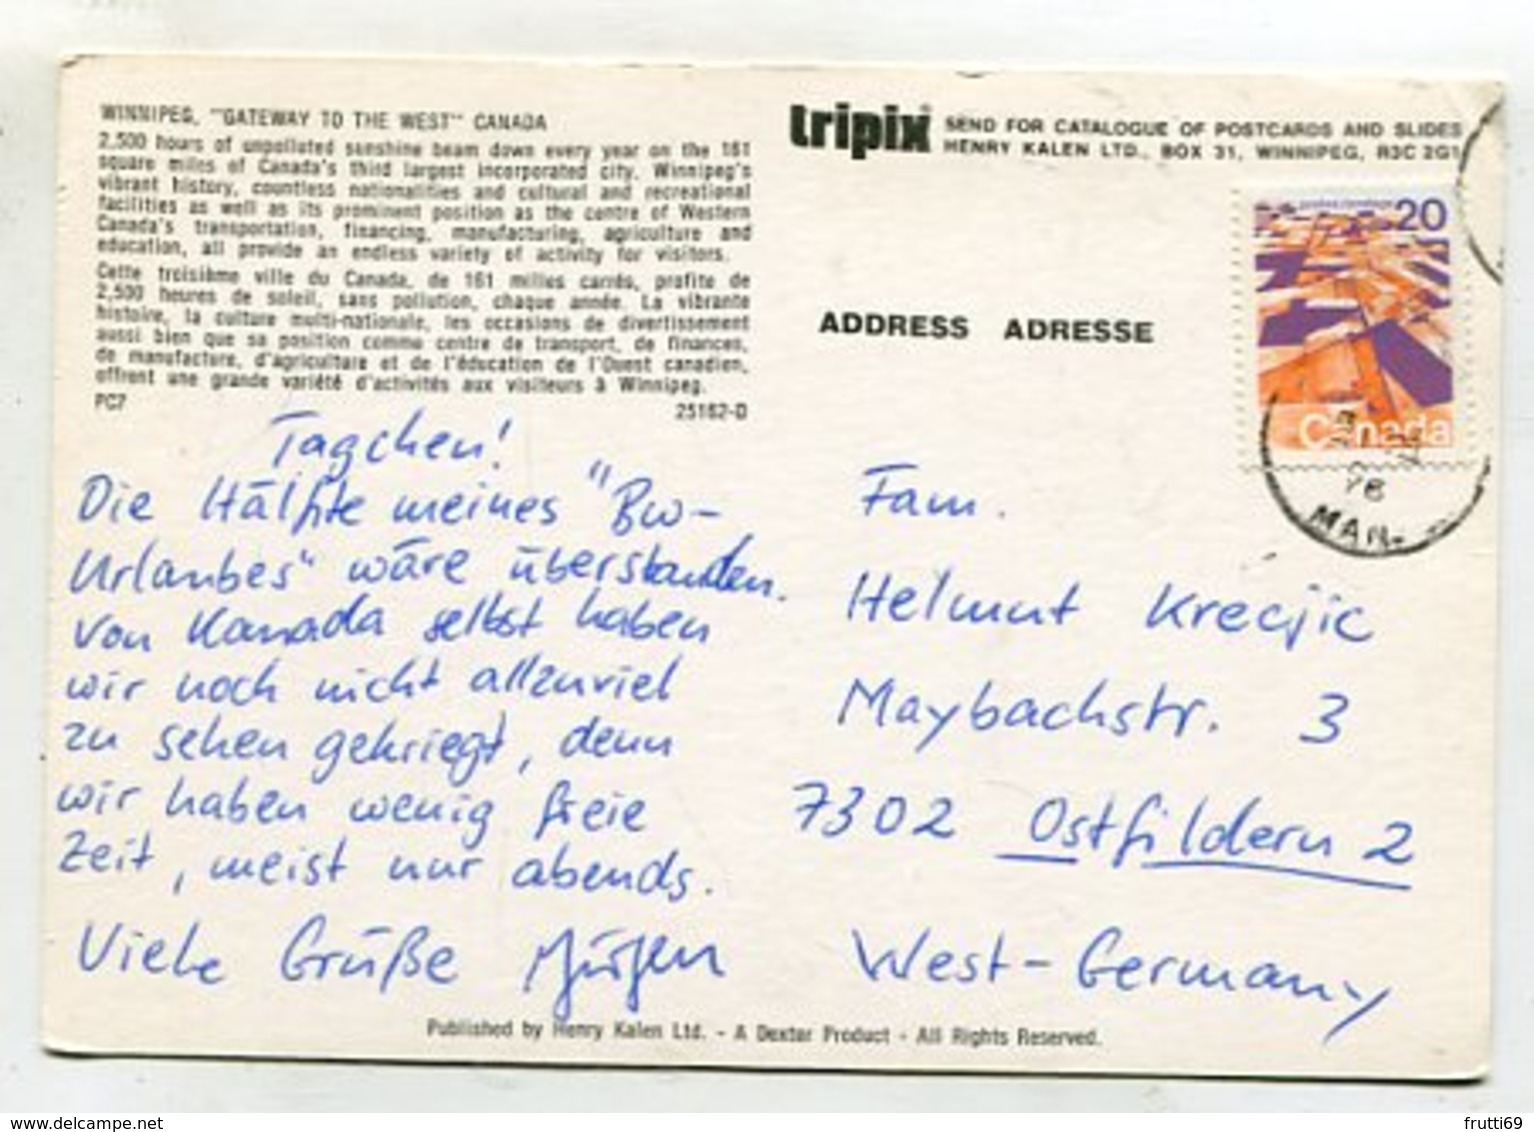 WINNIPEG, "GATEWAY TO THE WEST" CANADA
2,500 hours of unpolluted sunshine beam down every year on the 161
square miles of Canada's third largest incorporated city. Winnipeg's
vibrant history, countless nationalities and cultural and recreational
facilities as well as its prominent position as the centre of Western
Canada's transportation, financing, manufacturing, agriculture and
education, all provide an endless variety of activity for visitors.
Cette troisième ville du Canada, de 161 milles carrés, profite de
2,500 heures de soleil, sans pollution, chaque année. La vibrante
histoire, la culture multi-nationale, les occasions de divertissement
aussi bien que sa position comme centre de transport, de finances,
de manufacture, d'agriculture et de l'éducation de l'Ouest canadien,
offrent une grande variété d'activités aux visiteurs à Winnipeg.
PC7 25182-D
Tagchen!
Die Hälfte meines "Bw-
Urlaubes" wäre überstanden.
Von Kanada selbst haben
wir noch nicht allzuviel
zu sehen gekriegt, denn
wir haben wenig freie
Zeit, meist nur abends.
Viele Grüße Jürgen
tripix
SEND FOR CATALOGUE OF POSTCARDS AND SLIDES
HENRY KALEN LTD., BOX 31, WINNIPEG, R3C 2G1
postes/postage 20
Canada
78
MAN.
ADDRESS ADRESSE
Fam.
Helmut Krecjic
Maybachstr. 3
7302 Ostfildern 2
West-Germany
Published by Henry Kalen Ltd. - A Dexter Product - All Rights Reserved.
www.delcampe.net
frutti69